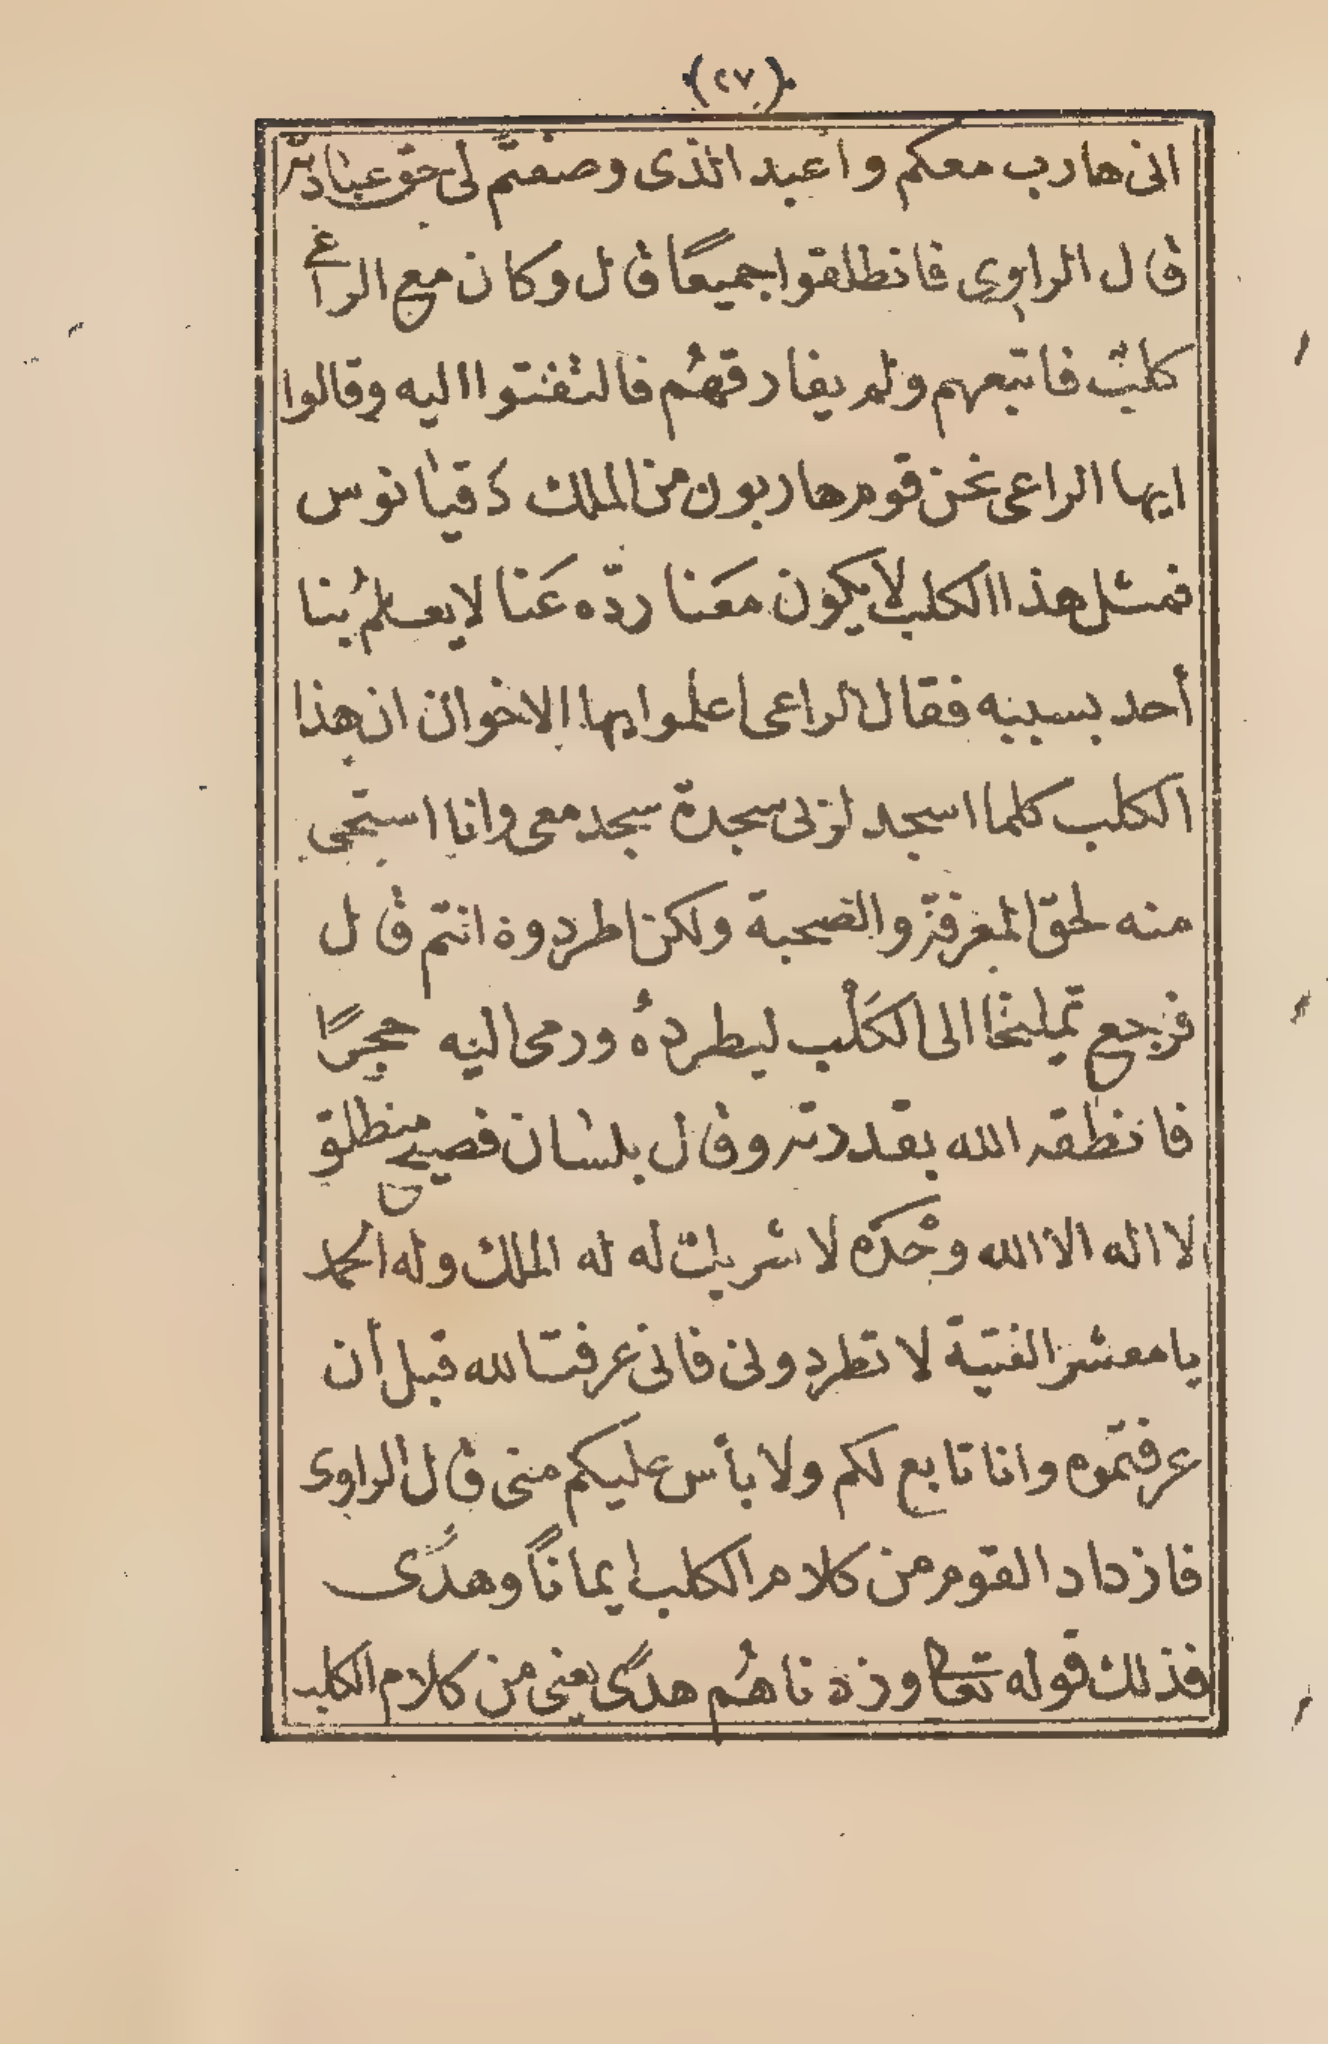 (٢٧)
انى هارب معكم وأعبد الذى وصفتم لى حق عبادته
قال الراوى فانطلقوا جميعًا قال وكان مع الراعى
كلب فاتبعهم ولم يفارقهُم فالتفتوا اليه وقالوا
ايها الراعى نحن قوم هاربون من الملك دقيانوس
فمثل هذا الكلب لا يكون مَعَنا ردّه عَنا لا يعلمُ بنا
أحد بسببه فقال الراعى اعلموا ايها الاخوان ان هذا
الكلب كلما اسجد لربى سجدة سجد معى وانا استحى
منه لحق المعرفة والصحبة ولكن اطردوه انتم قال
فرجع تمليخا الى الكَلْب ليطردهُ ورمى اليه حجرًا
فانطقه الله بقدرته وقال بلسان فصيح منطلق
لا اله الا الله وحْدَه لا شريك له له الملك وله الحمد
يا معشر الفتية لا تطردونى فانى عرفت الله قبل أن
عرفتموه وانا تابع لكم ولا بأس عليكم منى قال الراوى
فازداد القوم من كلام الكلب ايمانًا وهدًى
فذلك قوله تعالى وزدناهُم هدًى يعنى من كلام الكلب